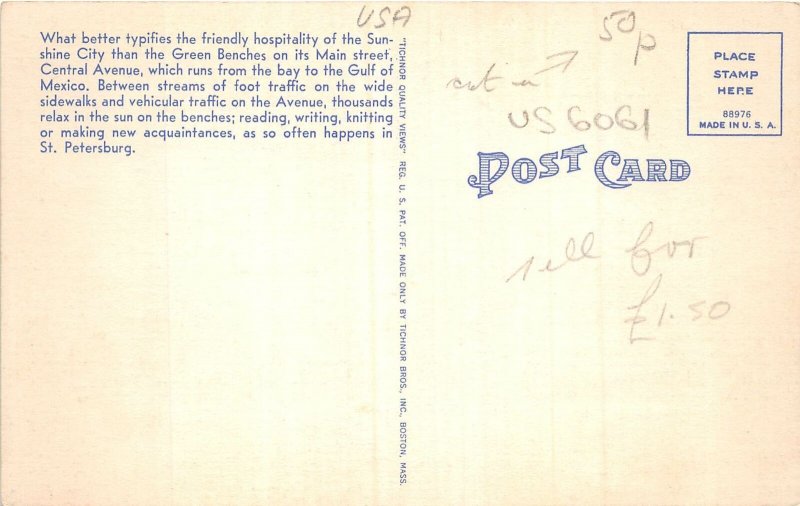 What better typifies the friendly hospitality of the Sun-
shine City than the Green Benches on its Main street,
Central Avenue, which runs from the bay to the Gulf of
Mexico. Between streams of foot traffic on the wide
sidewalks and vehicular traffic on the Avenue, thousands
relax in the sun on the benches; reading, writing, knitting
or making new acquaintances, as so often happens in
St. Petersburg.
"TICHNOR QUALITY VIEWS" REG. U. S. PAT. OFF. MADE ONLY BY TICHNOR BROS., INC., BOSTON, MASS.
USA
50p
US 6061
PLACE
STAMP
HERE
88976
MADE IN U. S. A.
POST CARD
sell for
£1.50